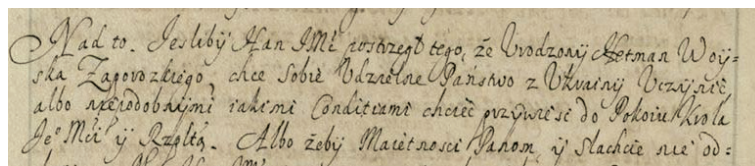 Nad to. Jesliby Han JMć postrzegł tego, że Vrodzony Hetman Woy=
ska Zaporozkiego, chce sobie Vdzielne Państwo z Vkrainy Vczynić,
albo niepodobnymi iakimi Conditiami chcieć przywieść do Pokoiu Krola
Je° Mći y Rzpltą. Albo żeby Maiętnosci Panom y Slachcie nie od=